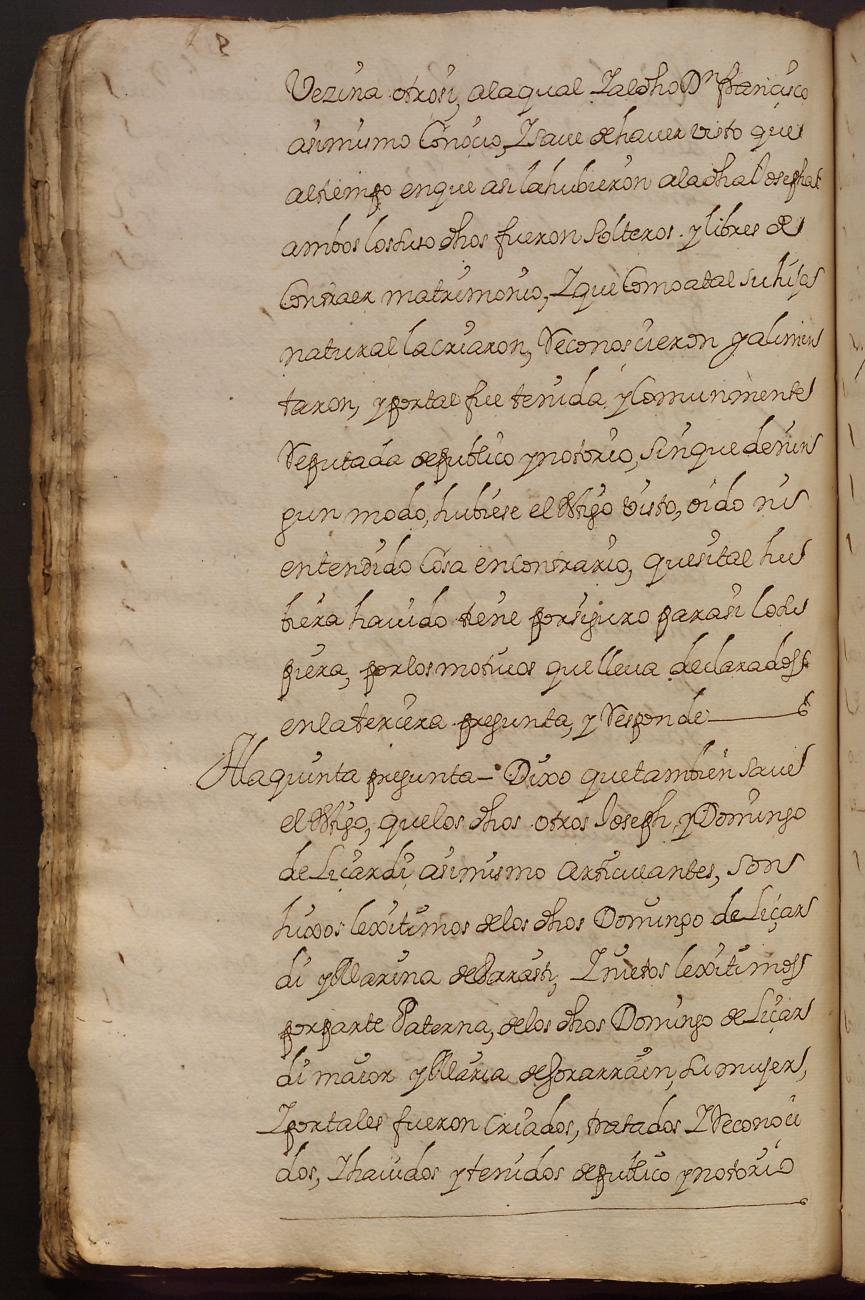 Vezina otrosi, alaqual Y al dho Dn franscisco
asimismo Conocio, Y save de haver visto que
al tiempo en que asi la hubieron ala dha Josepha
ambos los suso dhos fueron Solteros y libres de
Contraer matrimonio, Y que Como atal su hija
natural la criaron, Reconoscieron y alimen
taron, y por tal fue tenida, y Comunmente
Reputada de publico y notorio, sin que de nin
gun modo, hubiese el testigo visto, oido ni
entendido Cosa en contrario, que si tal hu
biera havido tiene por siguro para si lo su
piera, por los motivos que lleva declarados
en la tercera pregunta, y Responde
A la quinta pregunta - Dixo que tambien save
el testigo, que los dhos otros Joseph, y Domingo
de Liçardi, asimismo articulantes, son
hixos lexitimos de los dhos Domingo de Liçar
di y Marina de Yrrasti, Y nietos lexitimos
por parte Paterna, de los dhos Domingo de Liçar
di maior y Maria de Sorarrain, su mujer,
Y por tales fueron criados, tratados Y Reconoci
dos, Y havidos y tenidos de publico y notorio